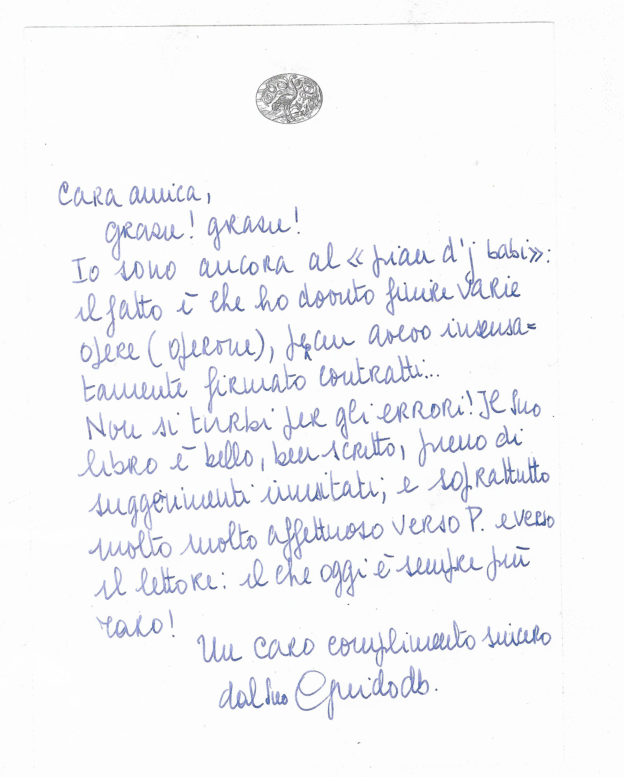 Cara amica,
grazie! grazie!
Io sono ancora al « pian d'j babi»:
il fatto è che ho dovuto finire varie
opere (operone), per cui avevo insensa=
tamente firmato contratti...
Non si turbi per gli errori! Il Suo
libro è bello, ben scritto, pieno di
suggerimenti inusitati; e soprattutto
molto molto affettuoso verso P. e verso
il lettore: il che oggi è sempre più
raro!
Un caro complimento sincero
dal Suo Guidodb.